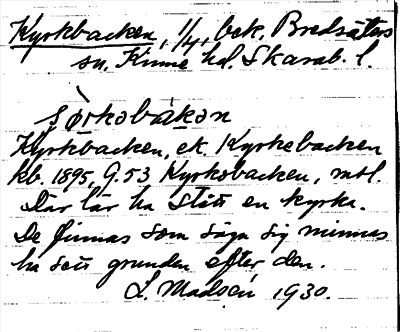 Kyrkbacken, 1/4, bek. Bredsäters
sn. Kinne hd. Skarab. l.
Kyrkbacken, ek. Kyrkebacken
kb. 1895, G.53 Kyrkobacken, mtl.
Där lär ha stått en kyrka.
De finnas som säga sig minnas
ha sett grunden efter den.
L. Madsén 1930.